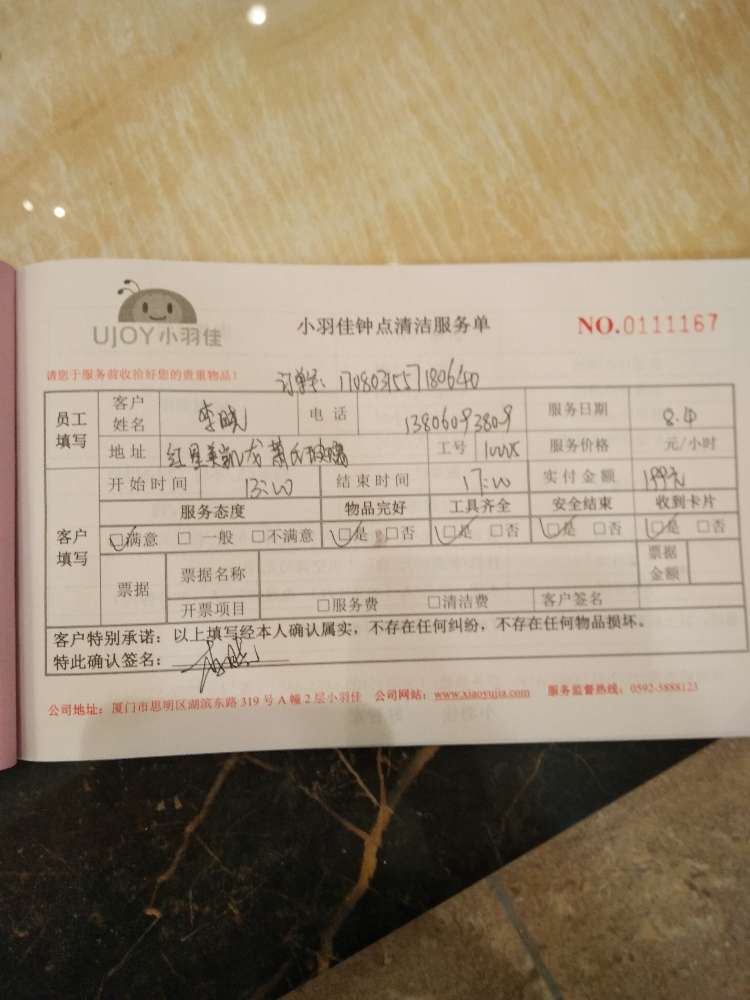 UJOY小羽佳
小羽佳钟点清洁服务单
NO.0111167
请您于服务前收拾好您的贵重物品!
订单号: 1708031557180640
员工填写 客户姓名 李晓 电话 13806093809 服务日期 8.4
地址 红星美凯龙 萧氏玻璃 工号 服务价格 元/小时
客户填写 开始时间 13:00 结束时间 17:00 实付金额 199元
服务态度 物品完好 工具齐全 安全结束 收到卡片
☑满意 □ 一般 □不满意 ☑是 □否 ☑是 □否 ☑是 □否 ☑是 □否
票据 票据名称 票据金额
开票项目 □服务费 □清洁费 客户签名
客户特别承诺:以上填写经本人确认属实,不存在任何纠纷,不存在任何物品损坏。
特此确认签名:
公司地址:厦门市思明区湖滨东路 319 号 A 幢 2 层小羽佳 公司网站:www.xiaoyujia.com 服务监督热线:0592-5888123